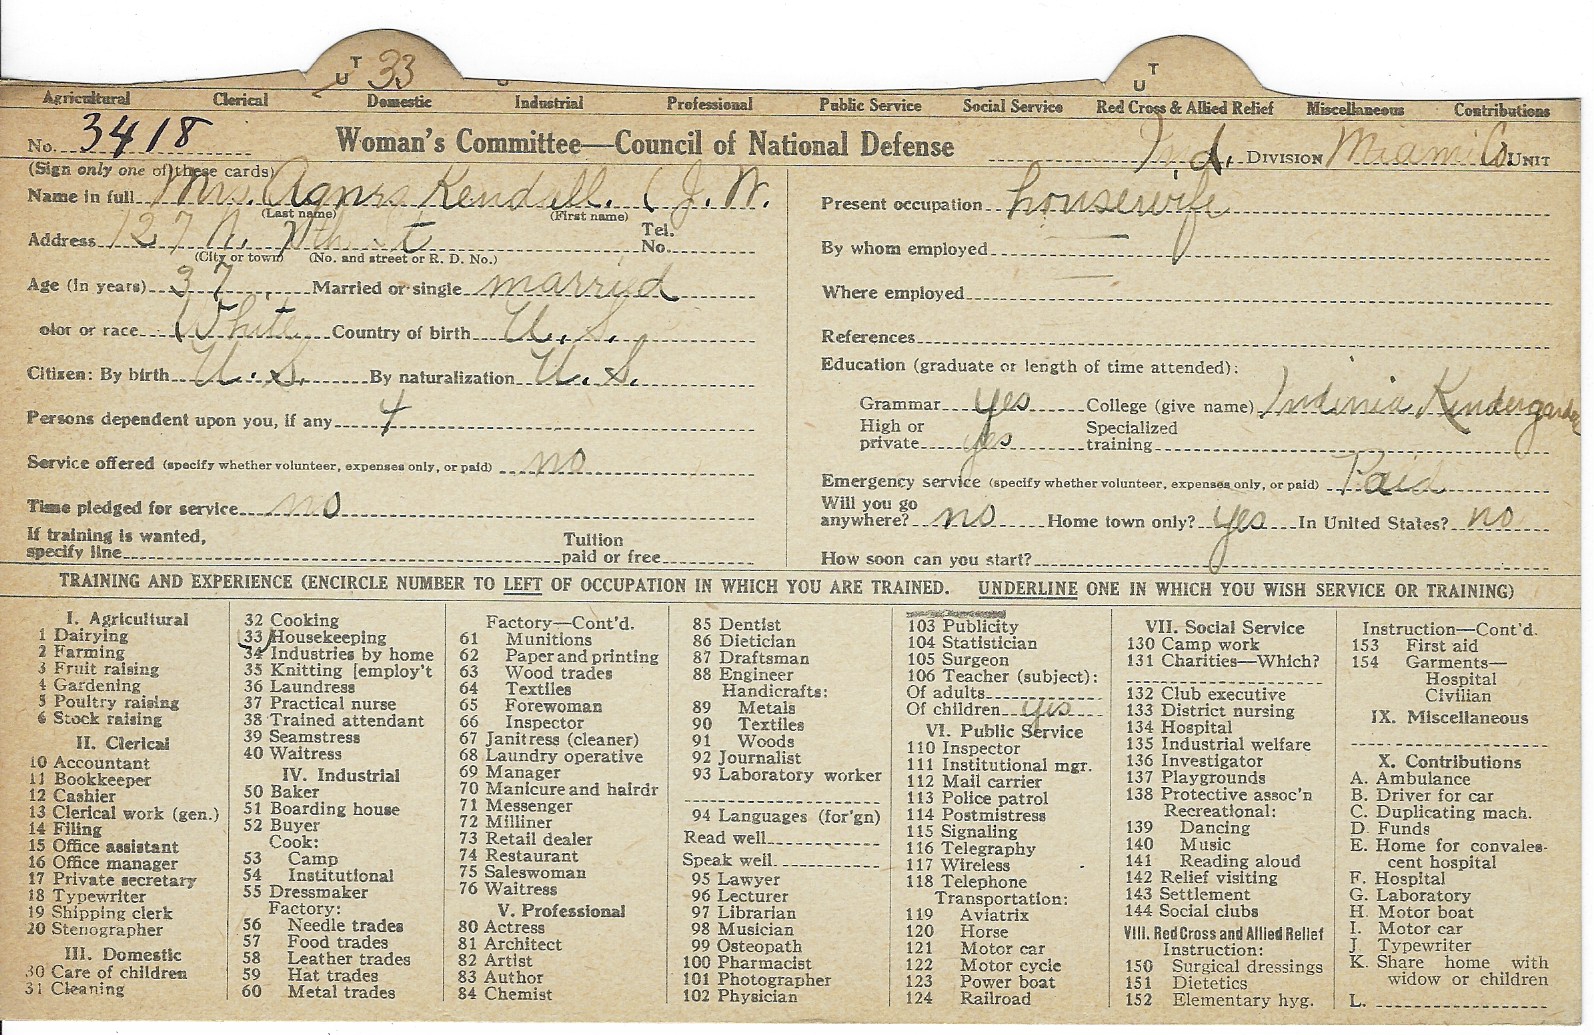 U T 33
U T
Agricultural Clerical Domestic Industrial Professional Public Service Social Service Red Cross & Allied Relief Miscellaneous Contributions
No. 3418 Woman's Committee—Council of National Defense Ind. DIVISION Miami Co. UNIT
(Sign only one of these cards)
Name in full Mrs. Agnes Kendall. (J. W.
(Last name) (First name)
Address 127 N. St Tel. No.
(City or town) (No. and street or R. D. No.)
Age (in years) 37 Married or single married
olor or race White Country of birth U. S.
Citizen: By birth U. S. By naturalization U. S.
Persons dependent upon you, if any 4
Service offered (specify whether volunteer, expenses only, or paid) no
Time pledged for service no
If training is wanted,
specify line Tuition paid or free
Present occupation housewife
By whom employed
Where employed
References
Education (graduate or length of time attended):
Grammar yes College (give name) Indinia Kindergarden
High or private yes Specialized training
Emergency service (specify whether volunteer, expenses only, or paid) Paid
Will you go anywhere? no Home town only? yes In United States? no
How soon can you start?
TRAINING AND EXPERIENCE (ENCIRCLE NUMBER TO LEFT OF OCCUPATION IN WHICH YOU ARE TRAINED. UNDERLINE ONE IN WHICH YOU WISH SERVICE OR TRAINING)
I. Agricultural
1 Dairying
2 Farming
3 Fruit raising
4 Gardening
5 Poultry raising
6 Stock raising
II. Clerical
10 Accountant
11 Bookkeeper
12 Cashier
13 Clerical work (gen.)
14 Filing
15 Office assistant
16 Office manager
17 Private secretary
18 Typewriter
19 Shipping clerk
20 Stenographer
III. Domestic
30 Care of children
31 Cleaning
32 Cooking
33 Housekeeping
34 Industries by home
35 Knitting [employ't
36 Laundress
37 Practical nurse
38 Trained attendant
39 Seamstress
40 Waitress
IV. Industrial
50 Baker
51 Boarding house
52 Buyer
Cook:
53 Camp
54 Institutional
55 Dressmaker
Factory:
56 Needle trades
57 Food trades
58 Leather trades
59 Hat trades
60 Metal trades
Factory—Cont'd.
61 Munitions
62 Paper and printing
63 Wood trades
64 Textiles
65 Forewoman
66 Inspector
67 Janitress (cleaner)
68 Laundry operative
69 Manager
70 Manicure and hairdr
71 Messenger
72 Milliner
73 Retail dealer
74 Restaurant
75 Saleswoman
76 Waitress
V. Professional
80 Actress
81 Architect
82 Artist
83 Author
84 Chemist
85 Dentist
86 Dietician
87 Draftsman
88 Engineer
Handicrafts:
89 Metals
90 Textiles
91 Woods
92 Journalist
93 Laboratory worker
94 Languages (for'gn)
Read well
Speak well
95 Lawyer
96 Lecturer
97 Librarian
98 Musician
99 Osteopath
100 Pharmacist
101 Photographer
102 Physician
103 Publicity
104 Statistician
105 Surgeon
106 Teacher (subject):
Of adults
Of children yes
VI. Public Service
110 Inspector
111 Institutional mgr.
112 Mail carrier
113 Police patrol
114 Postmistress
115 Signaling
116 Telegraphy
117 Wireless
118 Telephone
Transportation:
119 Aviatrix
120 Horse
121 Motor car
122 Motor cycle
123 Power boat
124 Railroad
VII. Social Service
130 Camp work
131 Charities—Which?
132 Club executive
133 District nursing
134 Hospital
135 Industrial welfare
136 Investigator
137 Playgrounds
138 Protective assoc'n
Recreational:
139 Dancing
140 Music
141 Reading aloud
142 Relief visiting
143 Settlement
144 Social clubs
VIII. Red Cross and Allied Relief
Instruction:
150 Surgical dressings
151 Dietetics
152 Elementary hyg.
Instruction—Cont'd.
153 First aid
154 Garments—
Hospital
Civilian
IX. Miscellaneous
X. Contributions
A. Ambulance
B. Driver for car
C. Duplicating mach.
D. Funds
E. Home for convales-
cent hospital
F. Hospital
G. Laboratory
H. Motor boat
I. Motor car
J. Typewriter
K. Share home with
widow or children
L.